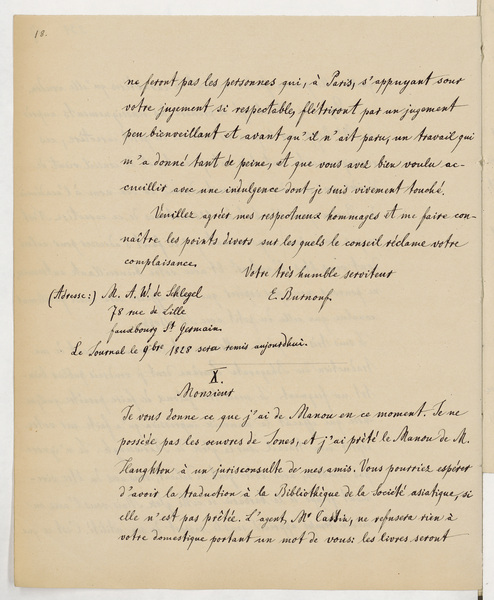 18.
ne feront pas les personnes qui, à Paris, s'appuyant sour
votre jugement si respectable, flétriront par un jugement
peu bienveillant et avant qu'il n'ait paru, un travail qui
m'a donné tant de peine, et que vous avez bien voulu ac-
cueillir avec une indulgence dont je suis vivement touché.
Veuillez agréer mes respectueux hommages et me faire con-
naître les points divers sur les quels le conseil réclame votre
complaisance.
Votre très humble serviteur
(Adresse:) M. A. W. de Schlegel
E. Burnouf.
78 rue de Lille
faudbourg St Germain.
Le Journal le 9bre 1828 sera remis aujourdhui.
X.
Monsieur
Je vous donne ce que j'ai de Manou en ce moment. Je ne
possède pas les oeuvres de Jones, et j'ai prêté le Manou de M.
Haughton à un jurisconsulte de mes amis. Vous pourriez espérer
d'avoir la traduction à la Bibliothèque de la Société asiatique, si
elle n'est pas prêtée. L'agent, Mr Cassin, ne refusera rien à
votre domestique portant un mot de vous: les livres seront